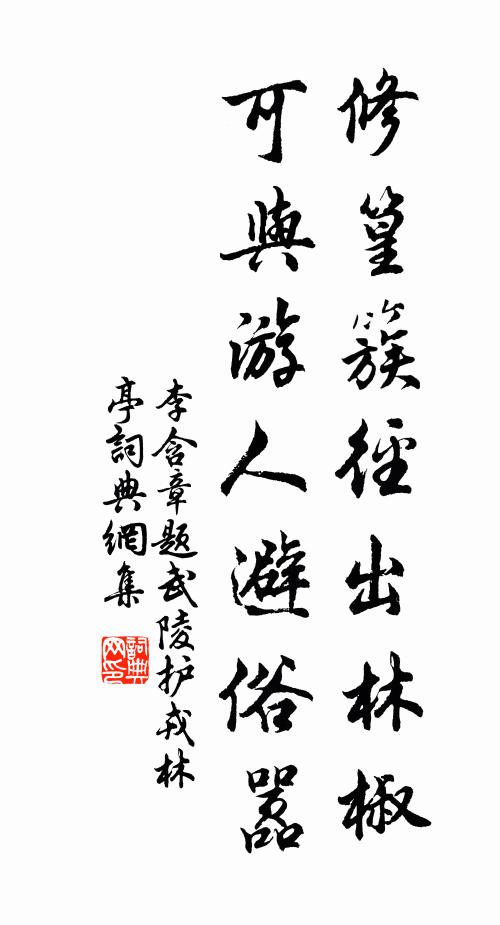 修篁簇徑出林椒
可與游人避俗囂
李含章題武陵护戎林
亭詞典網集
詞典
网印